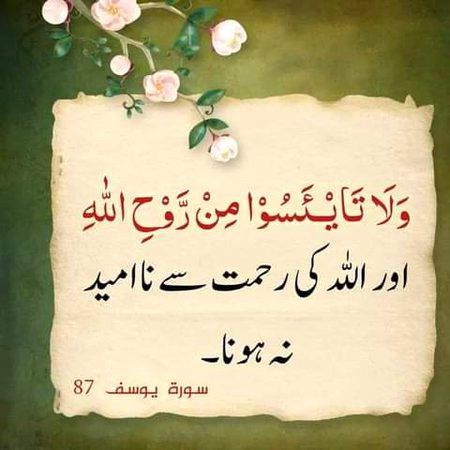 وَلَا تَايْـَٔسُوْا مِنْ رَّوْحِ اللّٰهِ
اور اللہ کی رحمت سے ناامید
نہ ہونا۔
سورة یوسف 87